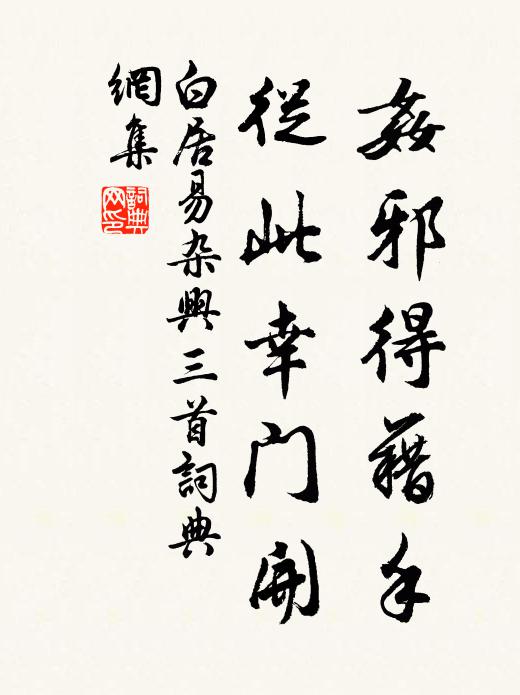 姦邪得藉手
從此幸門開
白居易杂興三首詞典
網集
詞典网印